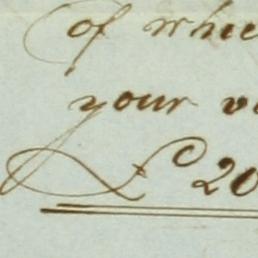 of whe
your v
£ 20